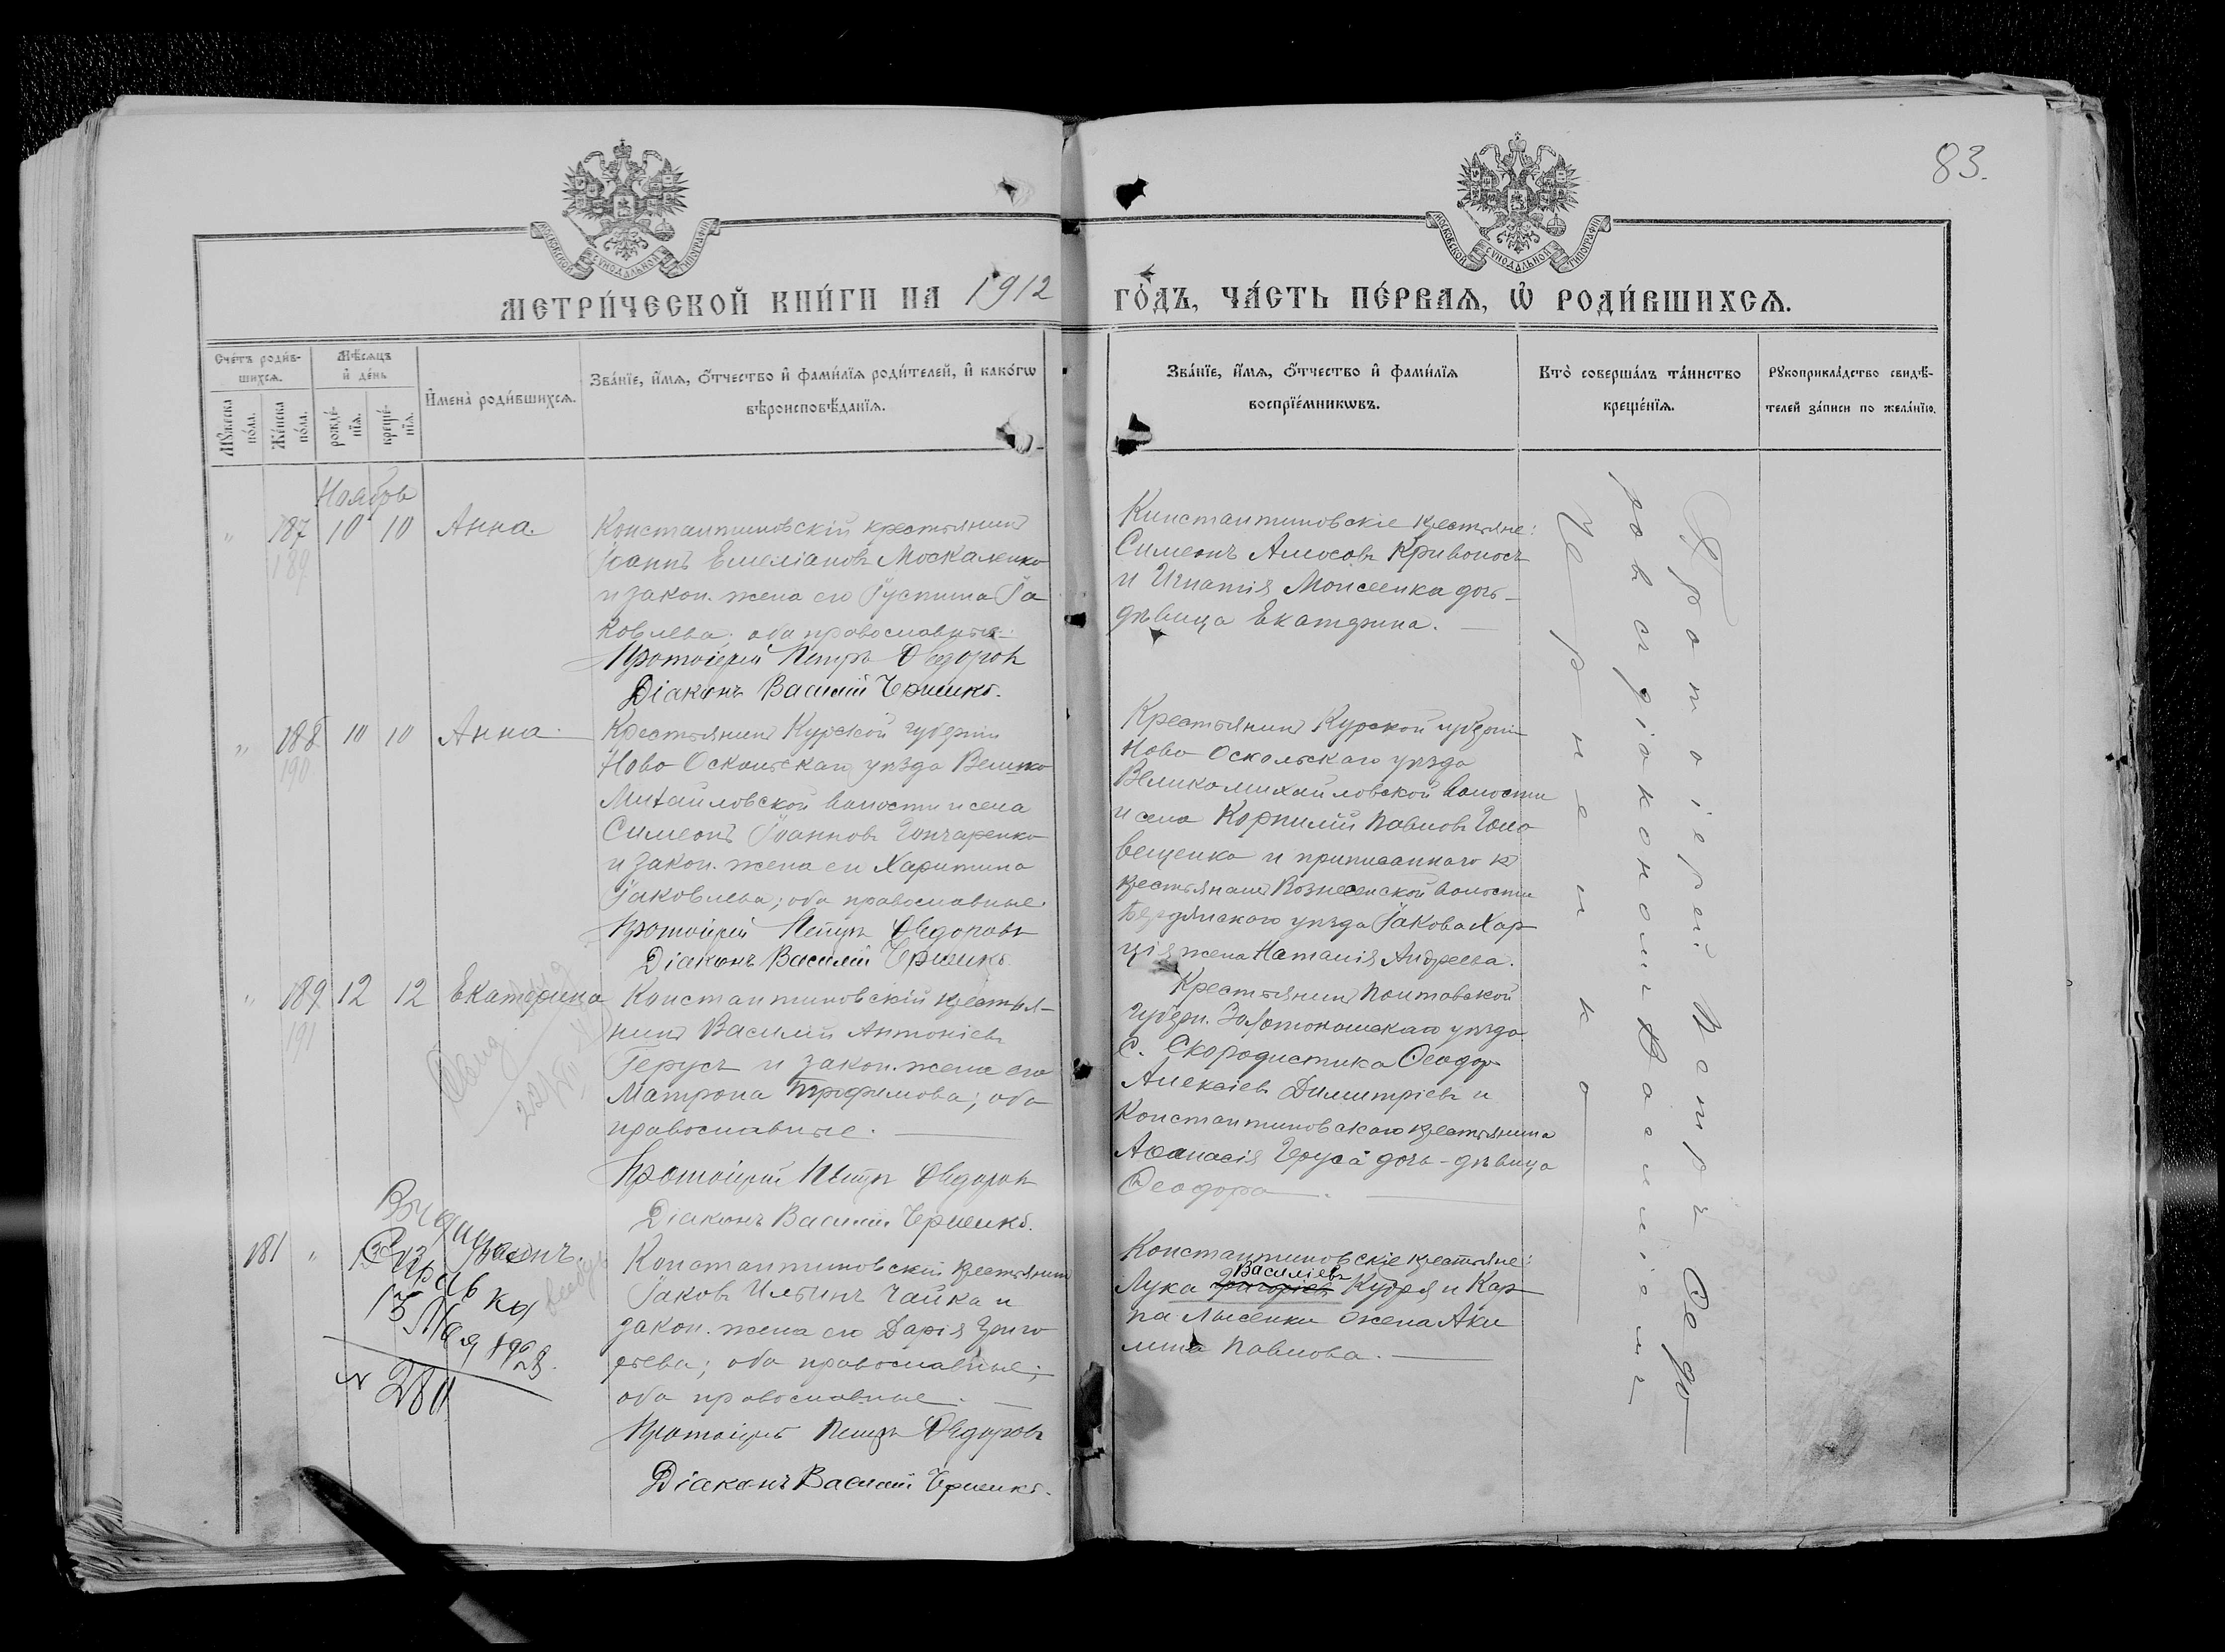 83.
МОСКОВСКОЙ СУНОДАЛЬНОЙ ТИПОГРАФІИ
МОСКОВСКОЙ СУНОДАЛЬНОЙ ТИПОГРАФІИ
МЕТРИ́ЧЕСКОЙ КНИ́ГИ НА 1912 ГО́ДЪ, ЧА́СТЬ ПЕ́РВАѦ, Ѡ҆ РОДИ́ВШИХСѦ.
Сче́тъ роди́в-
шихсѧ.
Мꙋжеска по́ла.
Же́нска по́ла.
Мѣ́сѧцъ
и҆ де́нь
рожде́-
нїѧ.
креще́-
нїѧ.
И҆мена̀ роди́вшихсѧ.
Зва́нїе, и҆́мѧ, ѻ҆́тчество и҆ фами́лїѧ роди́телей, и҆ како́гѡ
вѣроисповѣ́данїѧ.
Зва́нїе, и҆́мѧ, ѻ҆́тчество и҆ фами́лїѧ
воспрїе́мникѡвъ.
Кто̀ соверша́лъ та́инство
креще́нїѧ.
Рꙋкоприкла́дство свидѣ́-
телей за́писи по жела́нїю.
Ноябрь
" 187 10 10 Анна
189
Константиновскій крестьянинъ
Іоаннъ Емеліановъ Москаленко
и закон. жена его Іустина Іа
ковлева; оба православные.
Протоіерей Петръ Ѳедоровъ
Діаконъ Василій Черненко.
Константиновскіе крестьяне:
Симеонъ Амосовъ Кривоносъ
и Игнатія Моисеенка дочь-
дѣвица Екатерина.
" 188 10 10 Анна
190
Крестьянинъ Курской губерніи
Ново Оскольскаго уѣзда Велико
Михайловской волости и села
Симеонъ Іоанновъ Гончаренко
и закон. жена его Харитина
Іаковлева; оба православные.
Протоіерей Петръ Ѳедоровъ
Діаконъ Василій Черненко.
Крестьянинъ Курской губерніи
Ново Оскольскаго уѣзда
Великомихайловской волости
и села Корнилій Павловъ Голо
вещенко и приписаннаго къ
крестьянамъ Вознесенской волости
Бердянскаго уѣзда Іакова Хар
ція жена Наталія Андреева.
" 189 12 12 Екатерина
191
Константиновскій крестья-
нинъ Василій Антоніевъ
Герусъ и закон. жена его
Матрона Трофимова; оба
православные.
Протоіерей Петръ Ѳедоровъ
Діаконъ Василій Черненко.
Крестьянинъ Полтавской
губерн. Золотоношскаго уѣзда
с. Скородистика Ѳеодоръ
Алексіевъ Димитріевъ и
Константиновскаго крестьянина
Аѳанасія Геруса дочь-дѣвица
Ѳеодора.
181 "
Выдана
Справка
15 Мая 1928.
№ 280
Константиновскій крестьянинъ
Іаковъ Ильинъ Чайка и
закон. жена его Дарія Григо
рьева; оба православные;
оба православные.
Протоіерей Петръ Ѳедоровъ
Діаконъ Василій Черненко.
Константиновскіе крестьяне:
Василіевъ
Лука Григоріевъ Кудря и Кар
па Лысенки жена Аки
лина Павлова.
Протоіерей Петръ Ѳедо
ровъ съ діакономъ Василіемъ
Черненко